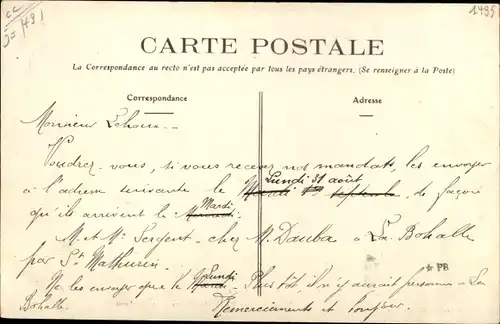 1995
CARTE POSTALE
La Correspondance au recto n'est pas acceptée par tous les pays étrangers. (Se renseigner à la Poste)
Correspondance
Adresse
Monsieur Lehoux
Voudrez-vous, si vous recevez nos mandats, les envoyer
Lundi 31 août
à l'adresse suivante le Mardi 1er septembre de façon
Mardi
qu'ils arrivent le
M. et Me Sergent - chez M. Dauba à La Bohalle
par St Mathurin
Lundi
Ne les envoyer que le Mardi. Plus tôt, il n'y aurait personne à La
Bohalle.
Remerciements et bonjour.
* PB